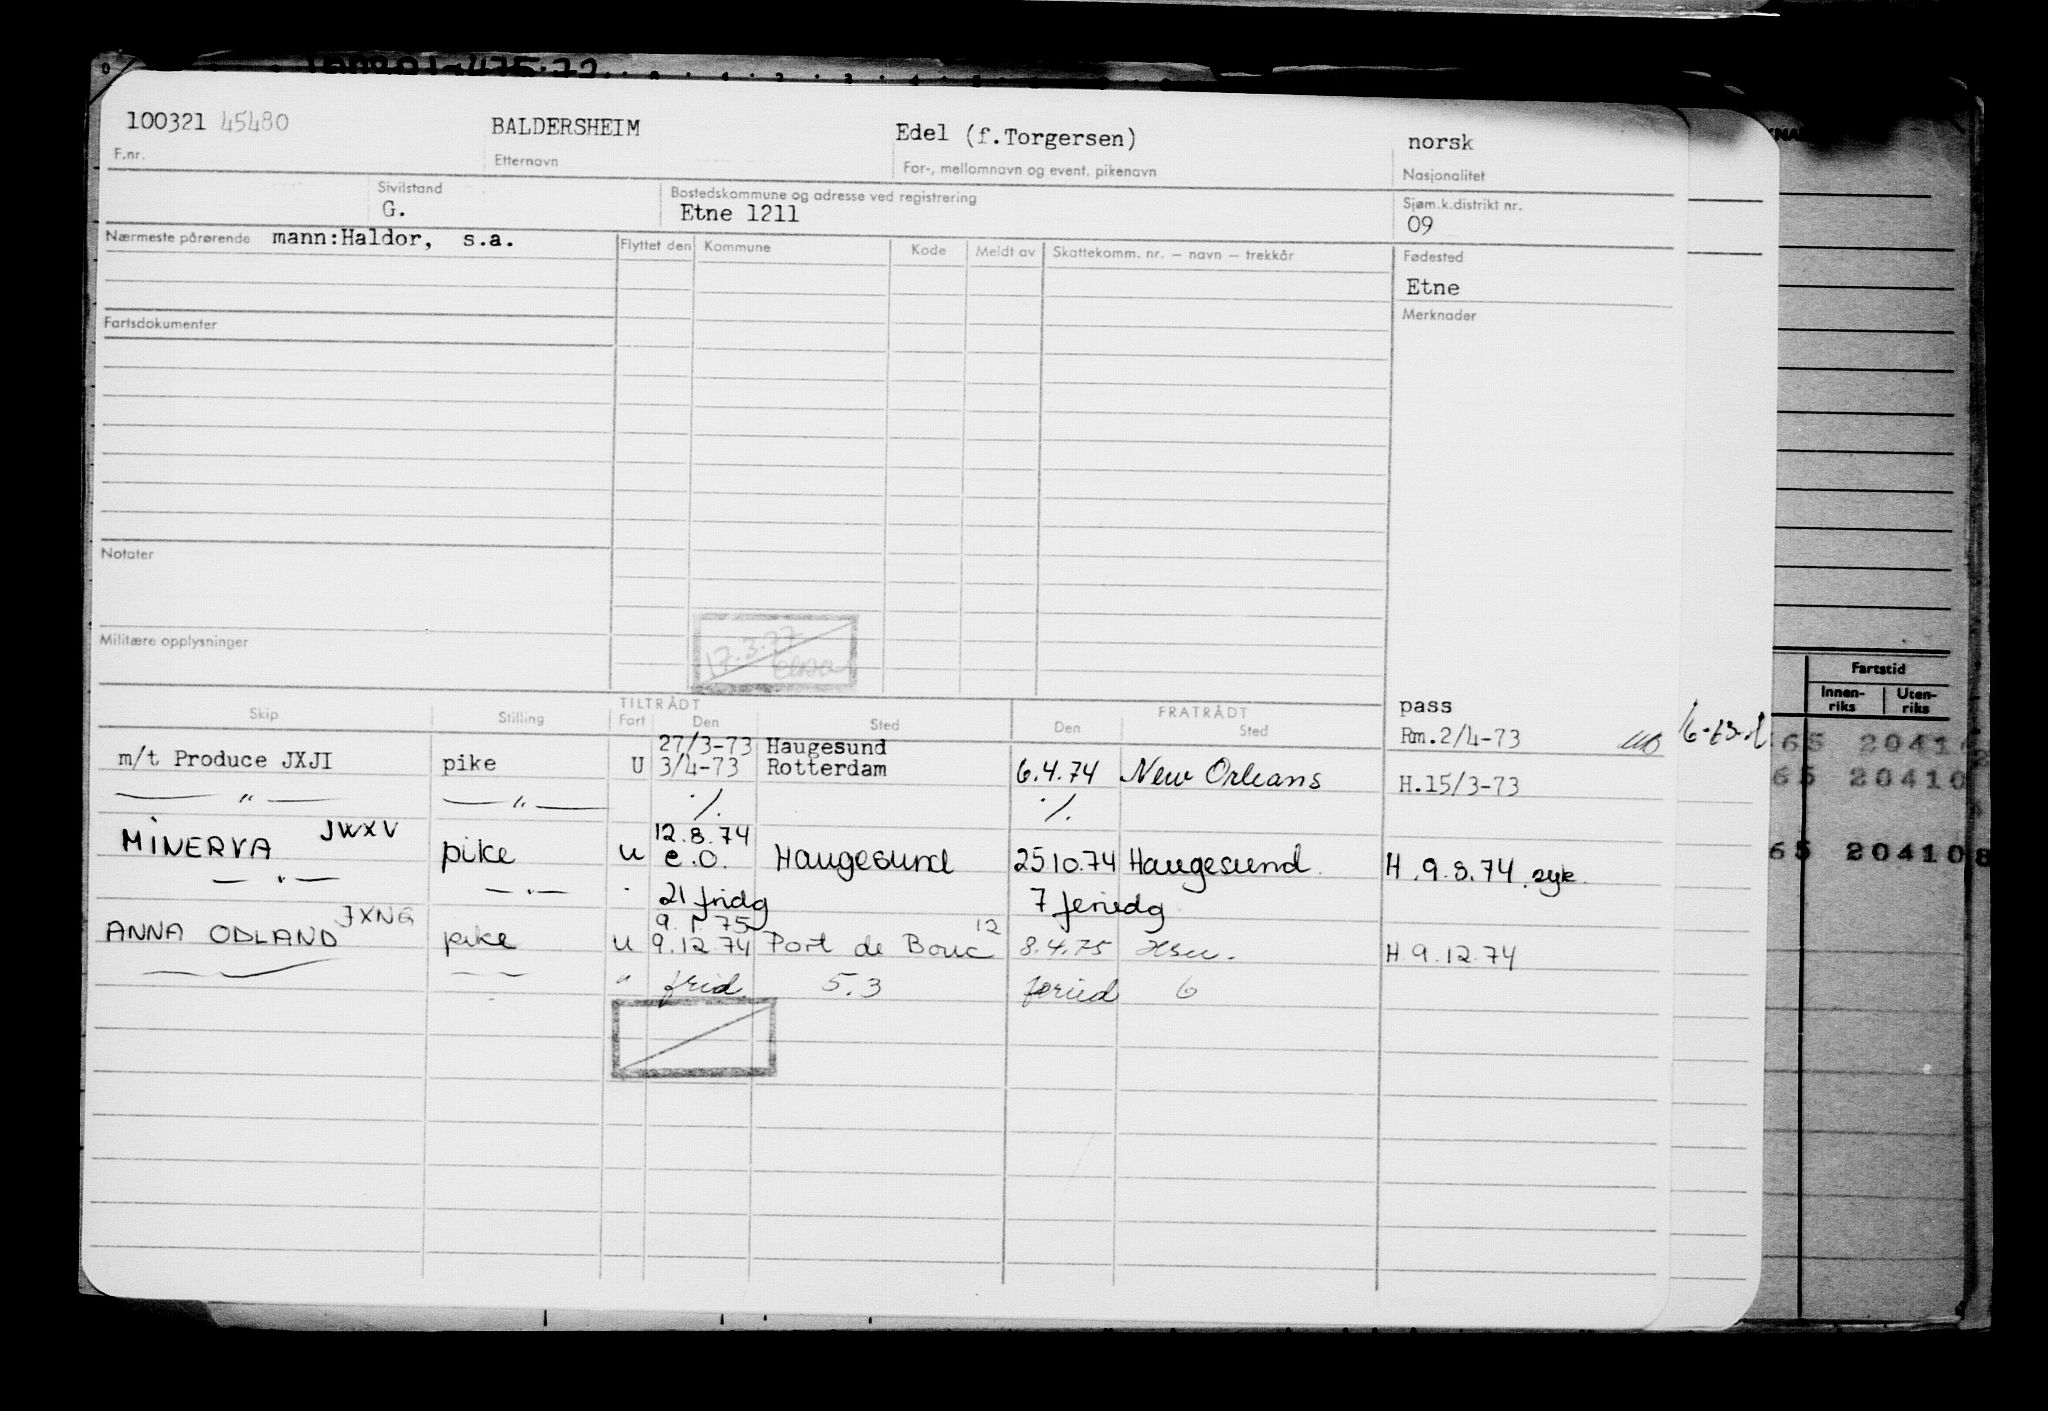 100321 45480 BALDERSHEIM Edel (f.Torgersen) norsk
F.nr. Etternavn For-, mellomnavn og event. pikenavn Nasjonalitet
Sivilstand Bostedskommune og adresse ved registrering Sjøm.k.distrikt nr.
G. Etne 1211 09
Nærmeste pårørende mann:Haldor, s.a. Flyttet den Kommune Kode Meldt av Skattekomm. nr. – navn – trekkår Fødested
Etne
Fartsdokumenter Merknader
Notater
17.3.77
Militære opplysninger
TILTRÅDT FRATRÅDT pass
Skip Stilling Fart Den Sted Den Sted Rm.2/4-73
27/3-73 Haugesund
m/t Produce JXJI pike U 3/4-73 Rotterdam 6.4.74 New Orleans H.15/3-73
— " — — " — ./. ./.
MINERVA JWXV 12.8.74
pike U e.o. Haugesund 25 10.74 Haugesund. H. 9.8.74. syk.
— " — — " — 21 fridg 7 feriedg
ANNA ODLAND JXNG 9. 1. 75 12
pike U 9.12.74 Port de Bouc 8.4.75 H. 9.12.74
" frid 5.3 feried 6
Fartstid
Innen-
riks
Uten-
riks
65 20410
65 20410
65 204108